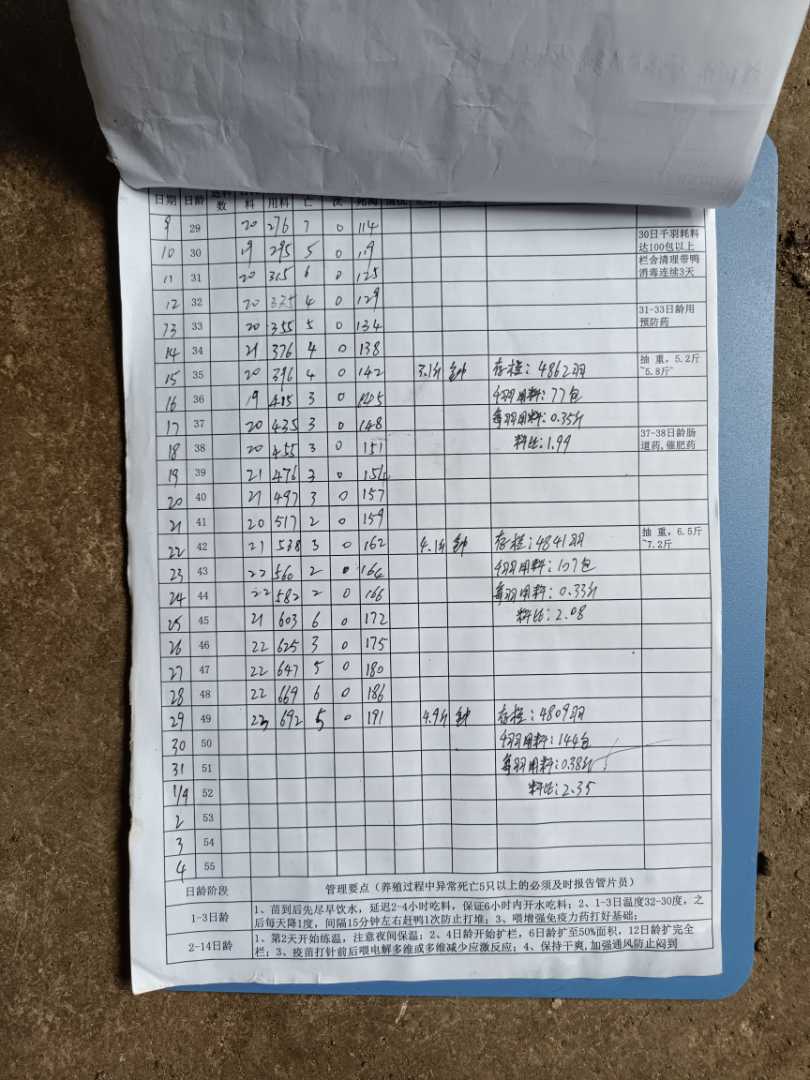 日期 日龄 料 用料 亡
9 29 20 276 7 0 114
30日千羽耗料
达100包以上
10 30 19 295 5 0 119
栏舍清理带鸭
消毒连续3天
11 31 20 315 6 0 125
12 32 20 335 4 0 129
31-33日龄用
预防药
13 33 20 355 5 0 134
14 34 21 376 4 0 138
15 35 20 396 4 0 142 3.1斤 存栏:4862羽
抽 重,5.2斤
~5.8斤
16 36 19 415 3 0 145 千羽用料:77包
17 37 20 435 3 0 148 每羽用料:0.35斤
18 38 20 455 3 0 151 料比:1.99
37-38日龄肠
道药,催肥药
19 39 21 476 3 0 154
20 40 21 497 3 0 157
21 41 20 517 2 0 159
22 42 21 538 3 0 162 4.1斤 存栏:4841羽
抽 重,6.5斤
~7.2斤
23 43 22 560 2 0 164 千羽用料:107包
24 44 22 582 2 0 166 每羽用料:0.33斤
25 45 21 603 6 0 172 料比:2.08
26 46 22 625 3 0 175
27 47 22 647 5 0 180
28 48 22 669 6 0 186
29 49 23 692 5 0 191 4.9斤 存栏:4809羽
30 50 千羽用料:144包
31 51 每羽用料:0.38斤
1/9 52 料比:2.35
2 53
3 54
4 55
日龄阶段 管理要点(养殖过程中异常死亡5只以上的必须及时报告管片员)
1-3日龄 1、苗到后先尽早饮水,延迟2-4小时吃料,保证6小时内开水吃料;2、1-3日温度32-30度,之
后每天降1度,间隔15分钟左右赶鸭1次防止打堆;3、喂增强免疫力药打好基础;
2-14日龄 1、第2天开始练温,注意夜间保温;2、4日龄开始扩栏,6日龄扩至50%面积,12日龄扩完全
栏;3、疫苗打针前后喂电解多维或多维减少应激反应;4、保持干爽,加强通风防止闷到